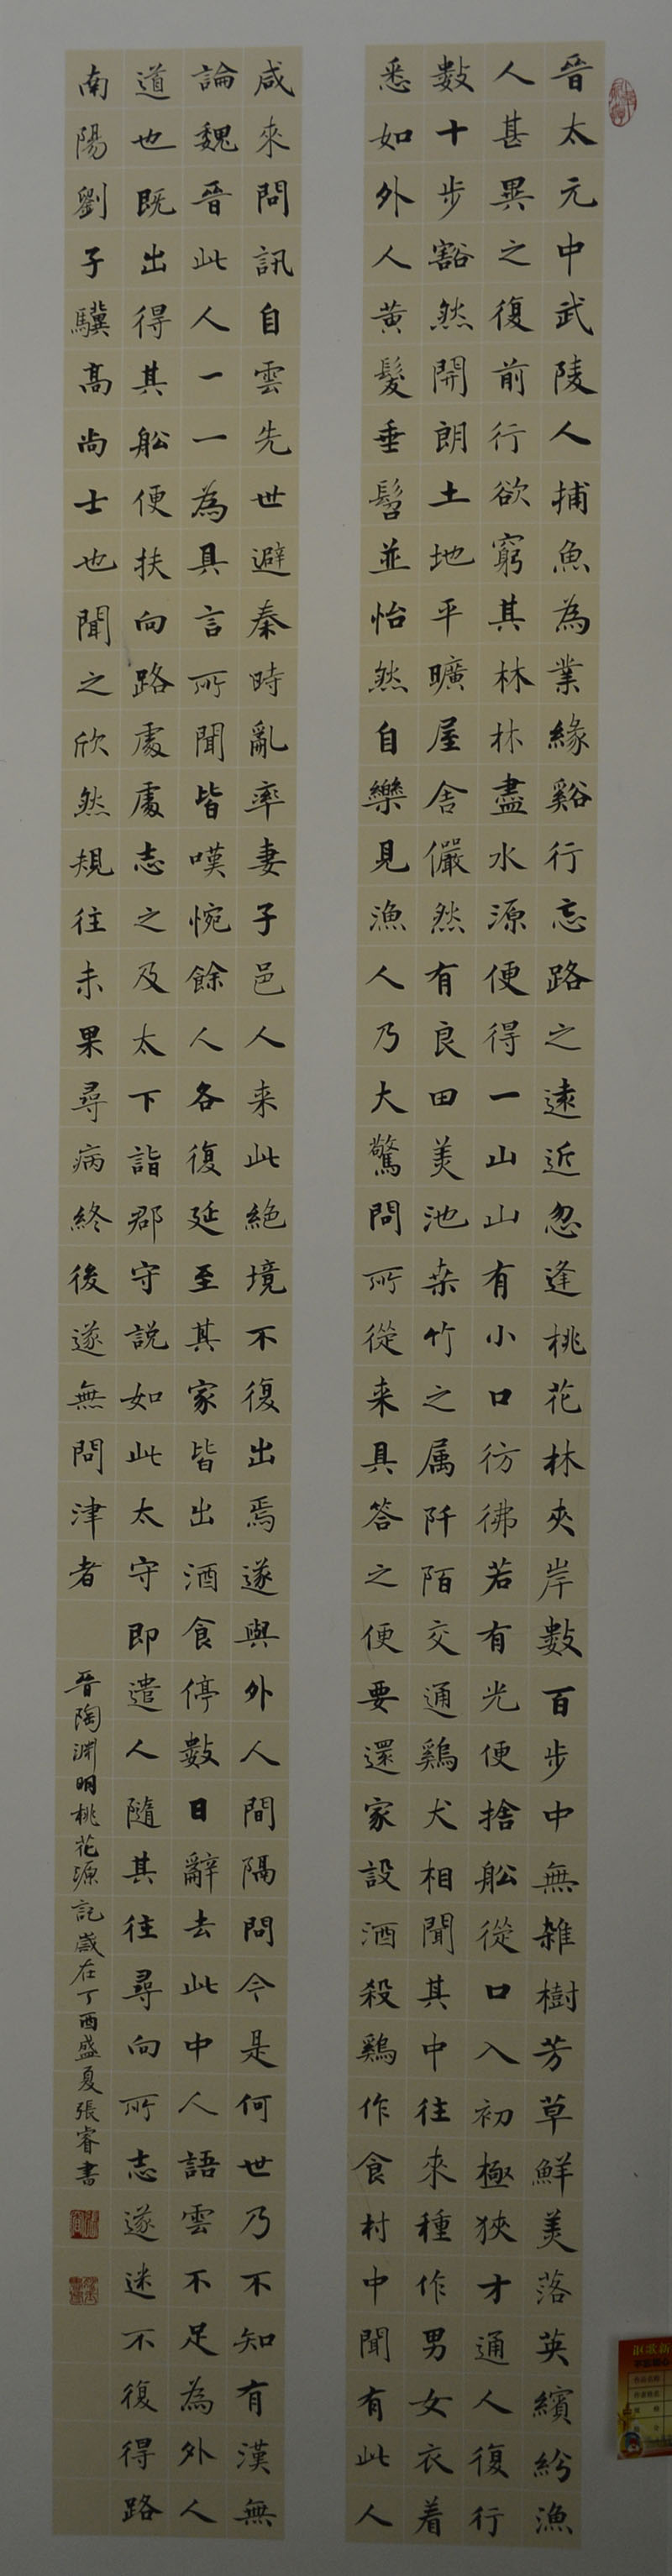 晉太元中武陵人捕魚為業緣谿行忘路之遠近忽逢桃花林夾岸數百步中無雜樹芳草鮮美落英繽紛漁
人甚異之復前行欲窮其林林盡水源便得一山山有小口彷彿若有光便捨舩從口入初極狹才通人復行
數十步豁然開朗土地平曠屋舍儼然有良田美池桒竹之属阡陌交通鷄犬相聞其中往來種作男女衣着
悉如外人黃髮垂髫並怡然自樂見漁人乃大驚問所從来具答之便要還家設酒殺鷄作食村中聞有此人
咸來問訊自雲先世避秦時亂率妻子邑人来此絕境不復出焉遂與外人間隔問今是何世乃不知有漢無
論魏晉此人一一為具言所聞皆嘆惋餘人各復延至其家皆出酒食停數日辭去此中人語雲不足為外人
道也既出得其舩便扶向路處處志之及太下詣郡守説如此太守即遣人隨其往尋向所志遂迷不復得路
南陽劉子驥高尚士也聞之欣然規往未果尋病終後遂無問津者
晉陶淵明桃花源記歲在丁酉盛夏張睿書